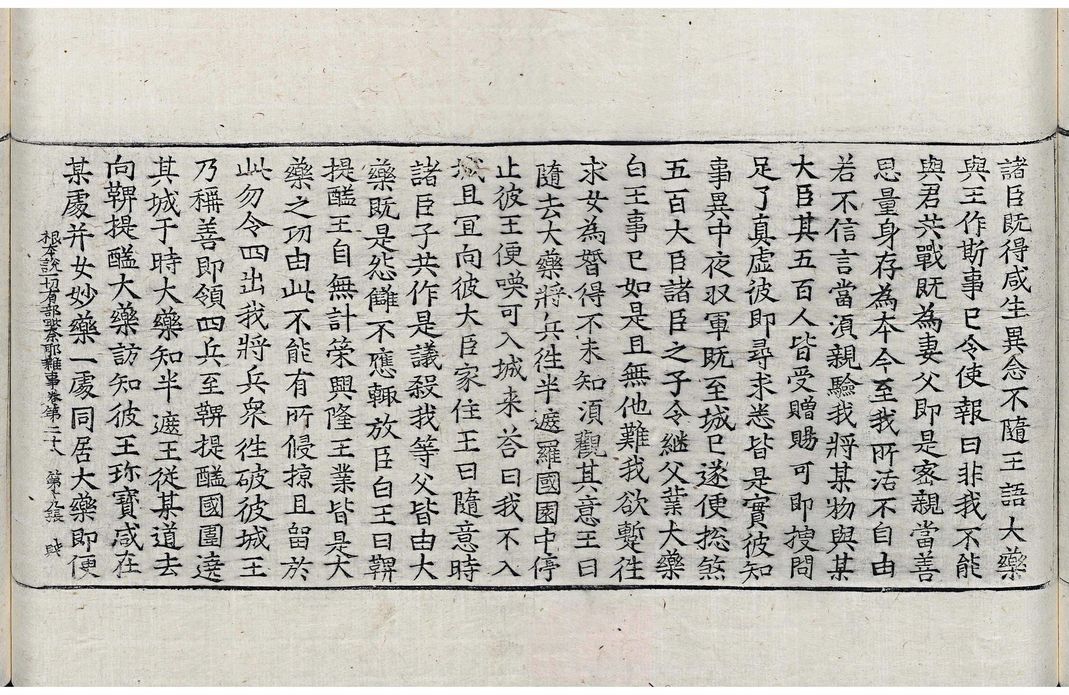 諸臣旣得咸生異念不隨王語大藥
與王作斯事已令使報曰非我不能
與君共戰旣為妻父即是密親當善
思量身存為本今至我所活不自由
若不信言當湏親驗我將某物與某
大臣其五百人皆受贈賜可即搜問
足了真虛彼即尋求悉皆是實彼知
事異中夜収軍旣至城已遂便揔煞
五百大臣諸臣之子令繼父業大藥
白王事已如是且無他難我欲暫往
求女為婚得不未知湏觀其意王曰
隨去大藥將兵往半遮羅國園中停
止彼王便喚可入城来荅曰我不入
城且宜向彼大臣家住王曰隨意時
諸臣子共作是議殺我等父皆由大
藥旣是怨讎不應輙放臣白王曰鞞
提醯王自無計策興隆王業皆是大
藥之功由此不能有所侵掠且留於
此勿令四出我將兵衆往破彼城王
乃稱善即領四兵至鞞提醯國圍遶
其城于時大藥知半遮王從某道去
向鞞提醯大藥訪知彼王珎寶咸在
某處并女妙藥一處同居大藥即便
根本說一切有部毗柰耶雜事卷第二十八 第十九張 映